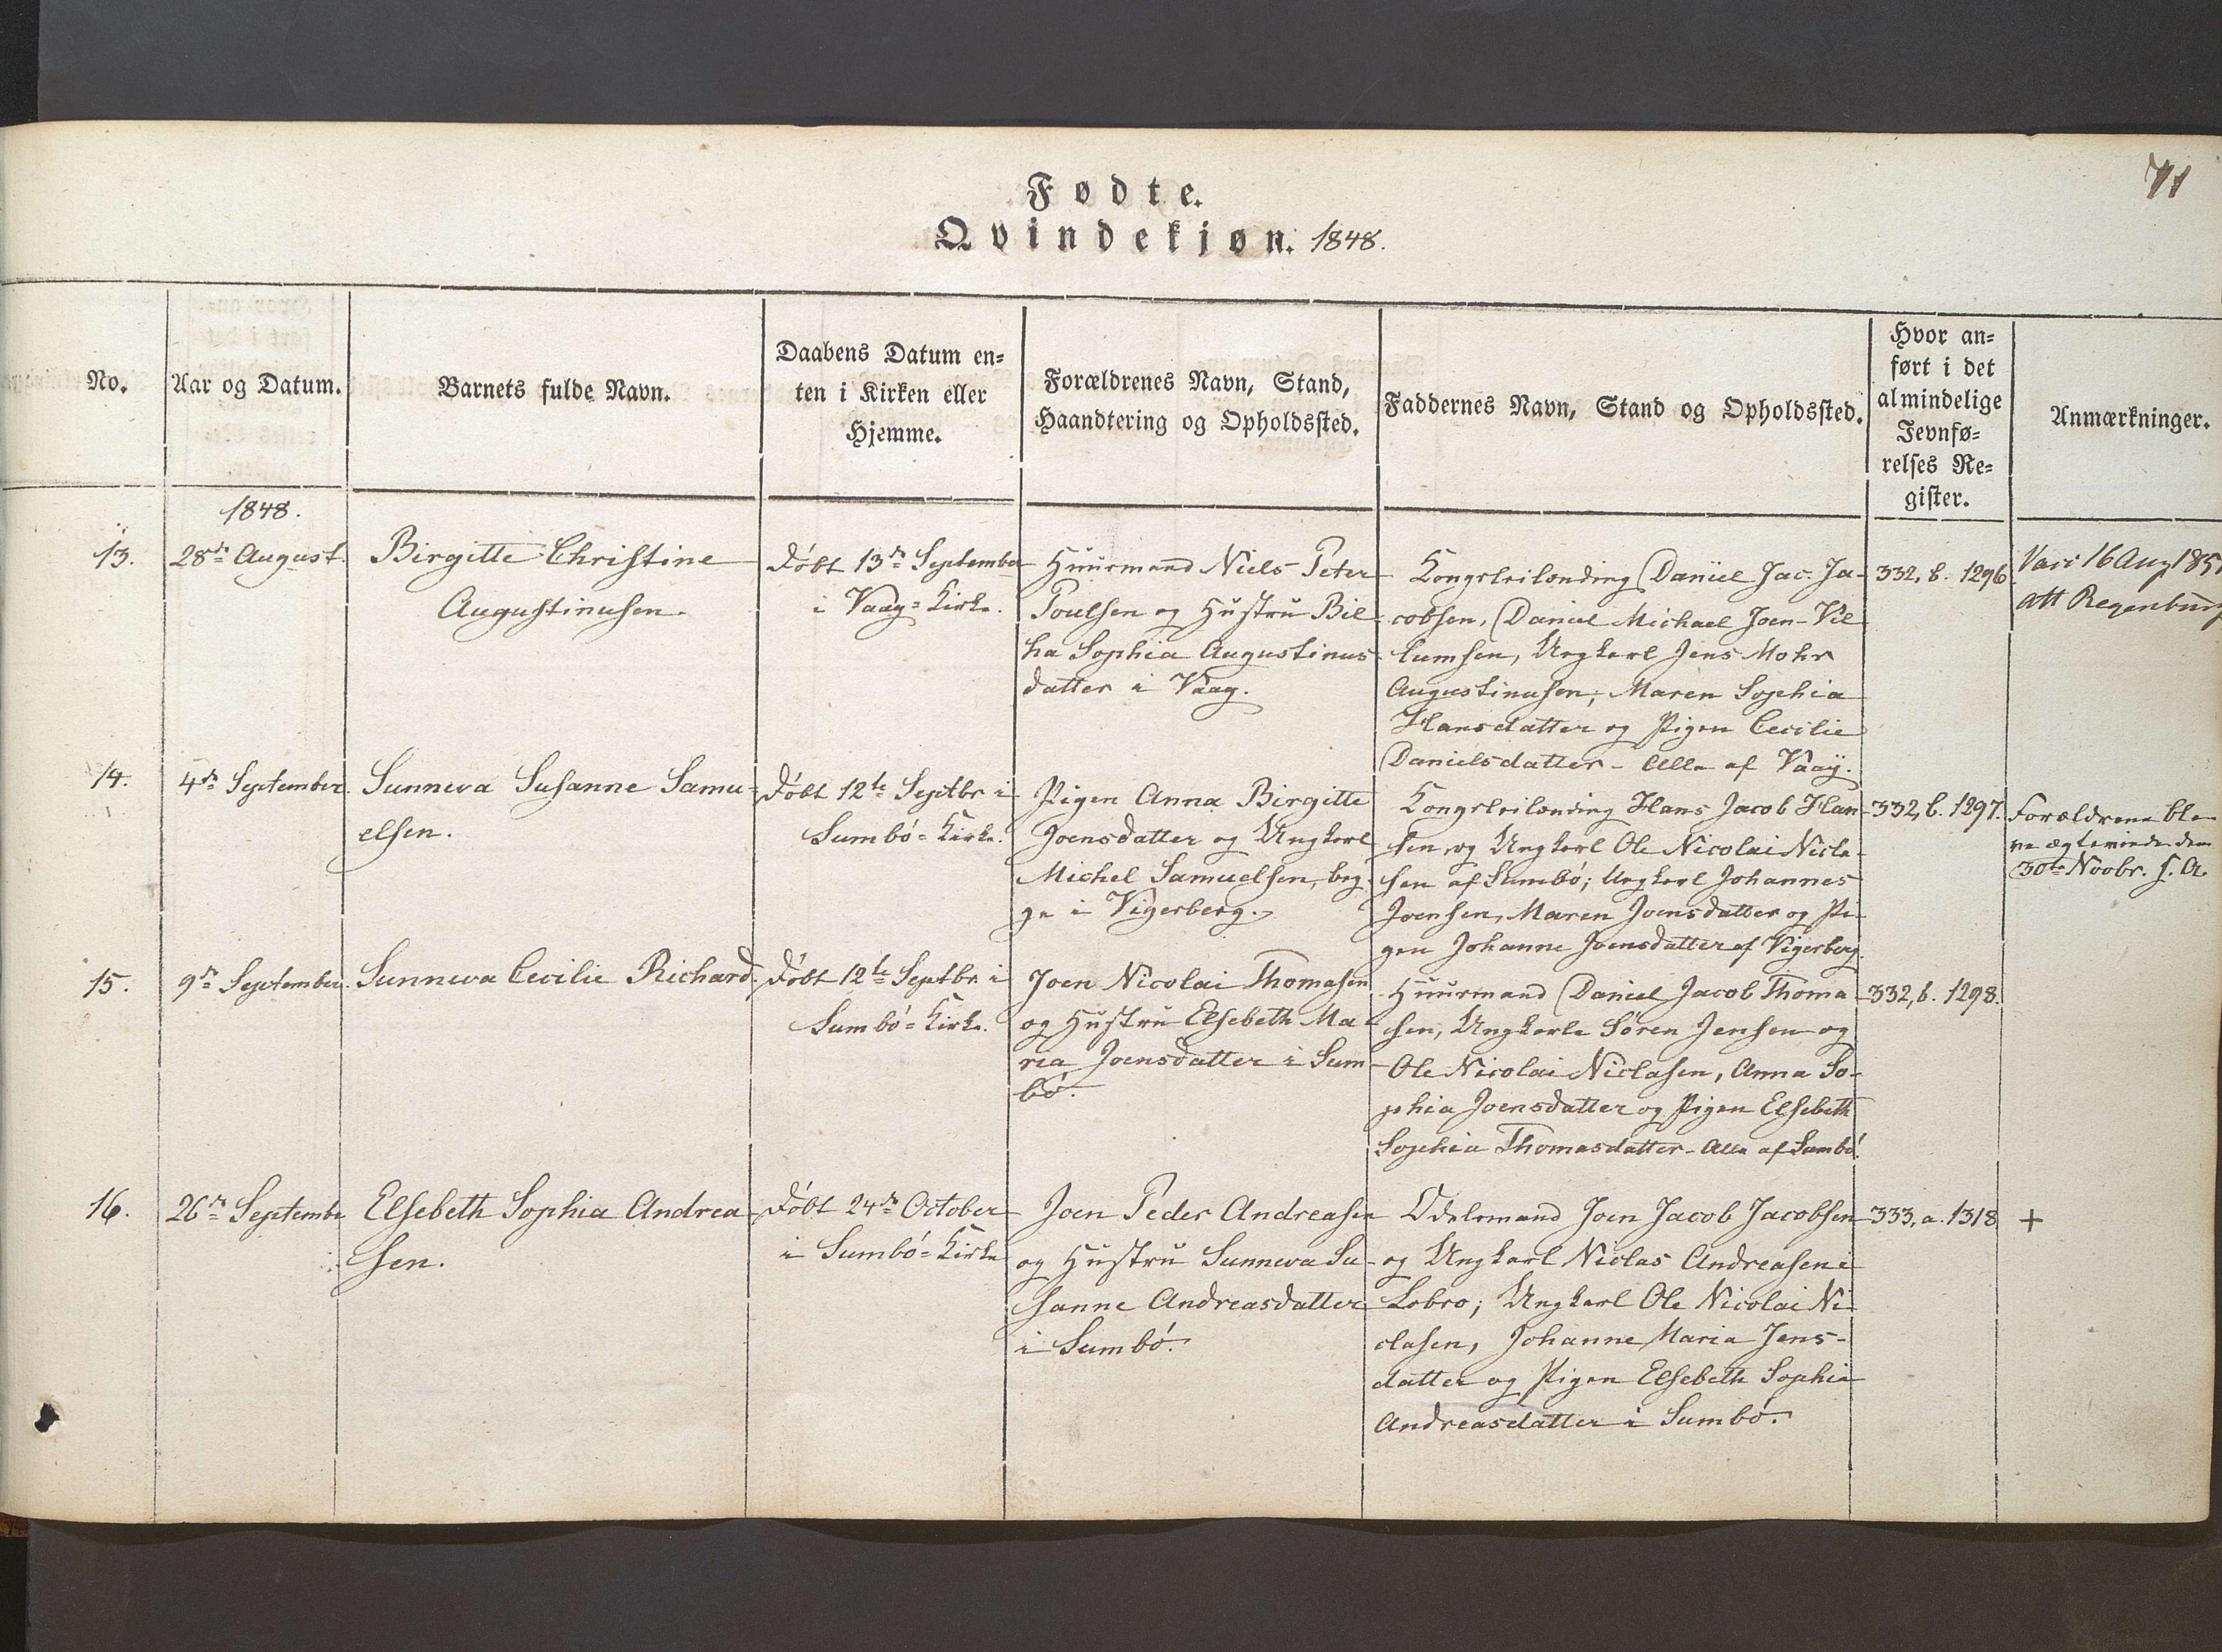 71
Fødte.
Qvindekjøn. 1848.
No.
Aar og Datum.
Barnets fulde Navn.
Daabens Datum en-
ten i Kirken eller
Hjemme.
Forældrenes Navn, Stand,
Haandtering og Opholdssted.
Faddernes Navn, Stand og Opholdssted.
Hvor an-
ført i det
almindelige
Jevnfø-
relses Re-
gister.
Anmærkninger.
1848.
13.
28de August.
Birgitte Christine
Augustinusen.
Døbt 13de September
i Vaag-Kirke.
Huusmand Niels Peter
Poulsen og Hustru Bil-
ha Sophia Augustinus
datter i Vaag.
Kongsleilending Daniel Jac. Ja-
cobsen, Daniel Michael Joen-Vil
lumsen, Ungkarl Jens Mohr
Augustinusen, Maren Sophia
Hansdatter og Pigen Cecilie
Danielsdatter - Alle af Vaag.
332, b. 1296
Vacc 16 Aug 185
att Regenburg
14.
4de September.
Sunneva Susanne Samu-
elsen.
Døbt 12te Septbr i
Sumbø-Kirke.
Pigen Anna Birgitte
Joensdatter og Ungkarl
Michel Samuelsen, beg-
ge i Vigerberg.
Kongsleilending Hans Jacob Han
sen og Ungkarl Ole Nicolai Nicla-
sen af Sumbø; Ungkarl Johannes
Joensen, Maren Joensdatter og Pi-
gen Johanne Joensdatter af Vigerberg.
332, b. 1297.
Forældrene ble
ve ægteviede den
30te Novbr. s. A.
15.
9de September.
Sunneva Cecilie Richard.
Døbt 12te Septbr i
Sumbø-Kirke.
Joen Nicolai Thomasen
og Hustru Elsebeth Ma-
ria Joensdatter i Sum-
bø.
Huusmand Daniel Jacob Thoma
sen, Ungkarle Søren Jensen og
Ole Nicolai Niclasen, Anna So-
phia Joensdatter og Pigen Elsebeth
Sophia Thomasdatter - Alle af Sumbø.
332, b. 1298.
16.
26de Septembr
Elsebeth Sophia Andrea
sen.
Døbt 24de October
i Sumbø-Kirke
Joen Peder Andreasen
og Hustru Sunneva Su-
sanne Andreasdatter
i Sumbø.
Odelsmand Joen Jacob Jacobsen
og Ungkarl Niclas Andreasen i
Lobro; Ungkarl Ole Nicolai Ni
clasen, Johanne Maria Jens-
datter og Pigen Elsebeth Sophia
Andreasdatter i Sumbø.
333, a. 1318
+